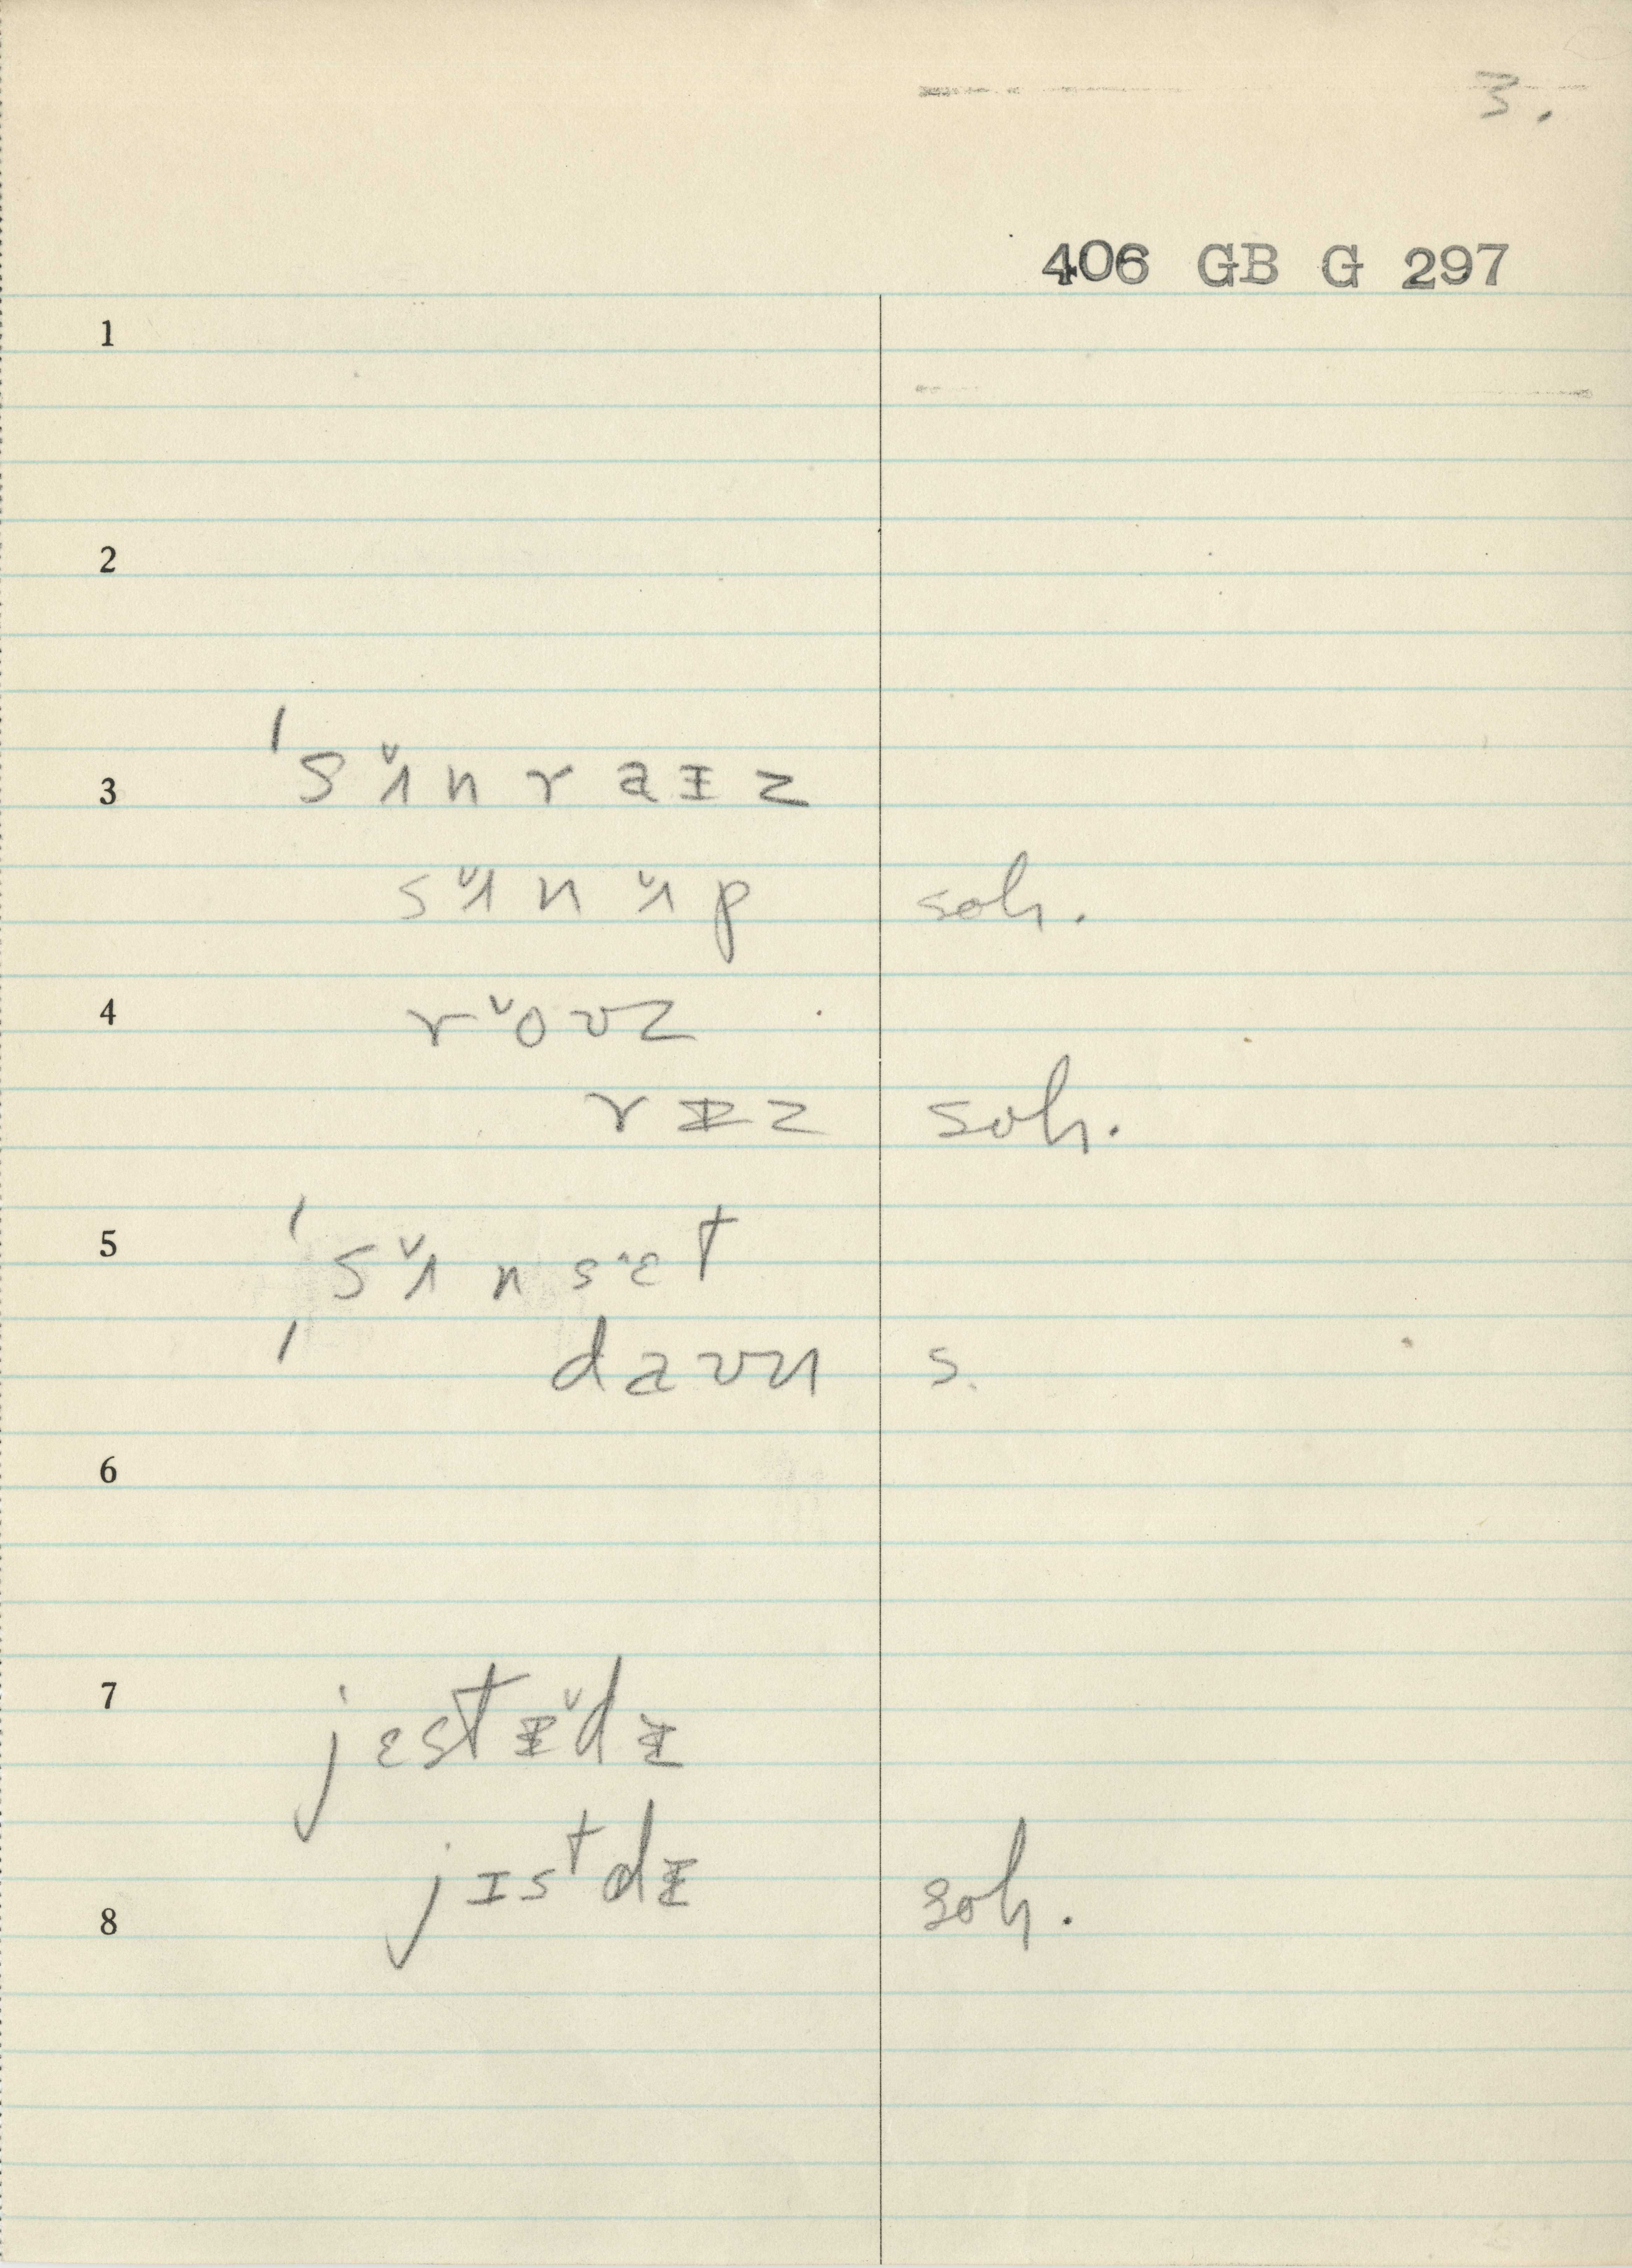 3.
406 GB G 297
1
2
3 ˈsʌ̌nraɪz
sʌ̌nʌ̌p soh.
4 rˇoʊz
rɪz soh.
5 ˈsʌ̌nsˆɛt
ˈdaʊn s.
6
7 jɛstɨˇdɨ
jɪstdɨ soh.
8